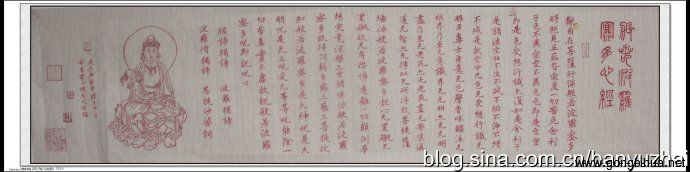 般若波羅
蜜多心經
觀自在菩薩行深般若波羅蜜多
時照見五蘊皆空度一切苦厄舍利
子色不異空空不異色色即是空空
即是色受想行識亦復如是舍利子
是諸法空相不生不滅不垢不淨不增
不減是故空中无色无受想行識无
眼耳鼻舌身意无色聲香味觸法无
眼界乃至无意識界无无明亦无无明
盡乃至无老死亦无老死盡无苦集滅
道无智亦无得以无所得故菩提薩
埵依般若波羅蜜多故心无罣礙无
罣礙故无有恐怖遠離顛倒夢
想究竟涅槃三世諸佛依般若波羅
蜜多故得阿耨多羅三藐三菩提故
知般若波羅蜜多是大神咒是大
明咒是无上咒是无等等咒能除一
切苦真實不虛故說般若波羅
蜜多咒即說咒曰
揭諦揭諦 波羅揭諦
波羅僧揭諦 菩提薩婆訶
blog.sina.com.cn/banwuzhai
www.gongshua.net